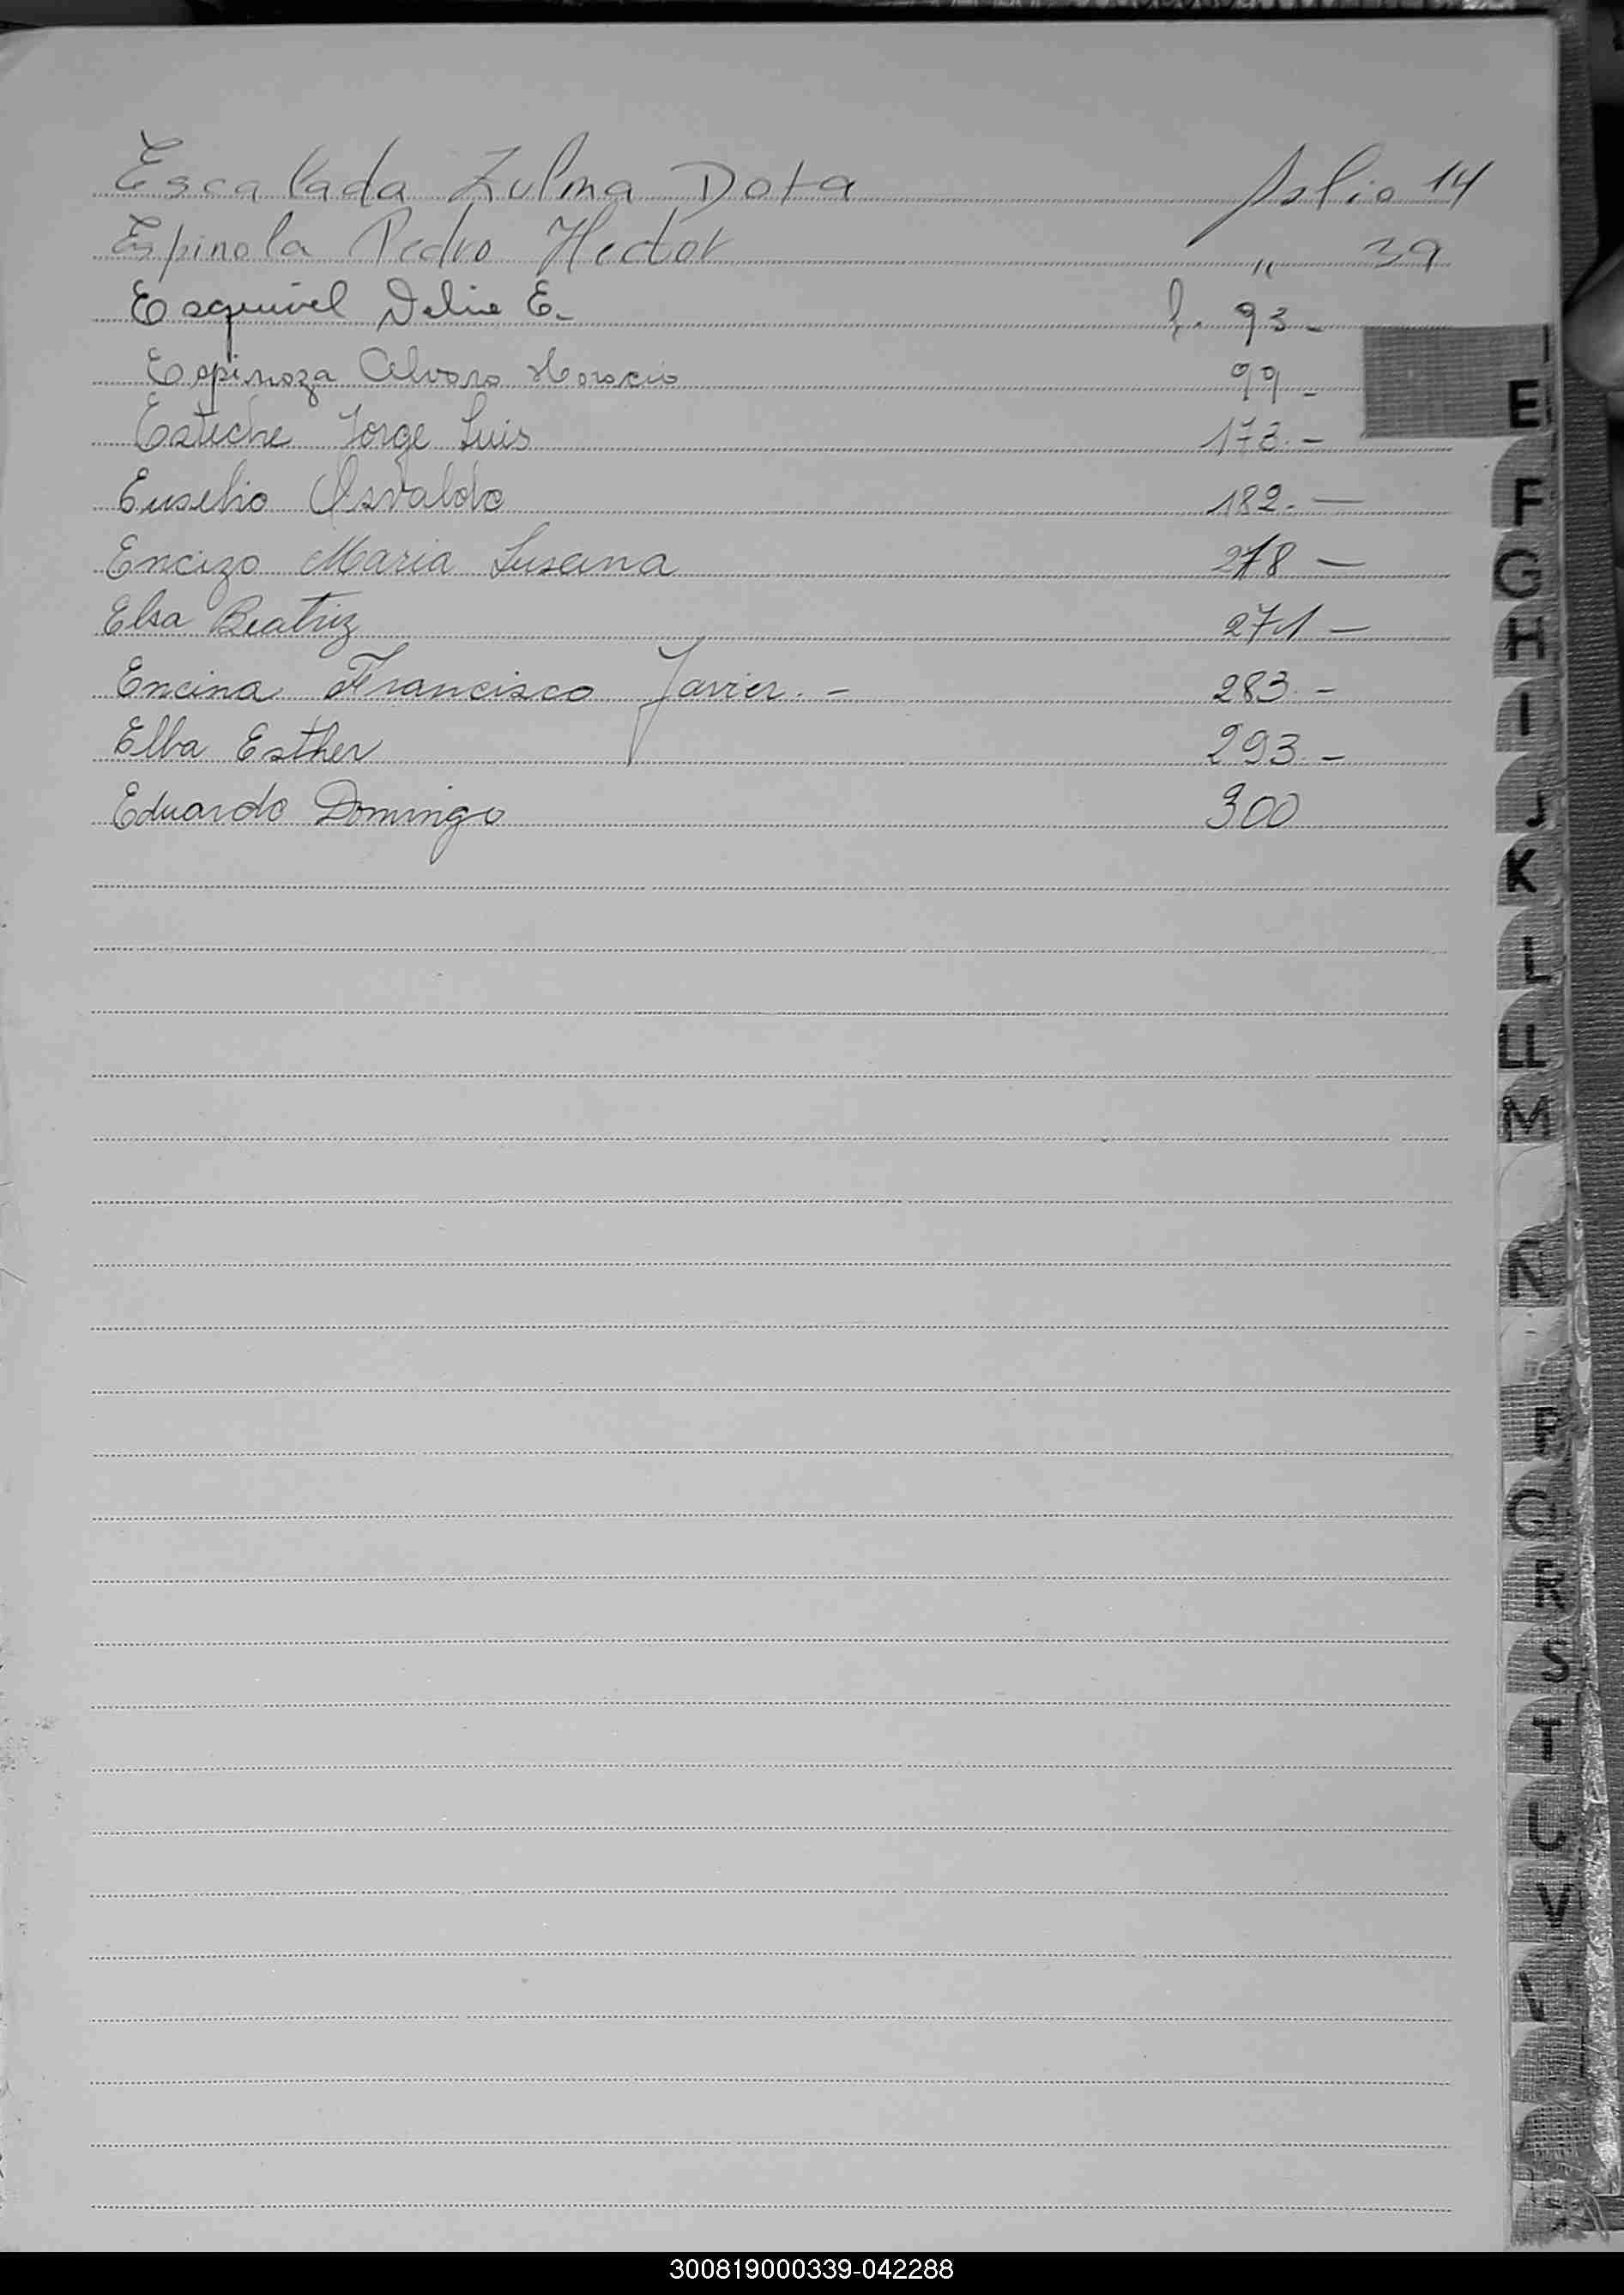 Escalada Zulma Dora folio 14
Espinola Pedro Hector " 39
Esquivel Delia E. - f. 93 -
Espinoza Alvaro Horacio 99 -
Esteche Jorge Luis 173. -
Eusebio Osvaldo 182. -
Encizo Maria Susana 278 -
Elsa Beatriz 271 -
Encina Francisco Javier. - 283. -
Elba Esther 293. -
Eduardo Domingo 300
E
F
G
H
I
J
K
L
LL
M
N
P
Q
R
S
T
U
V
300819000339-042288